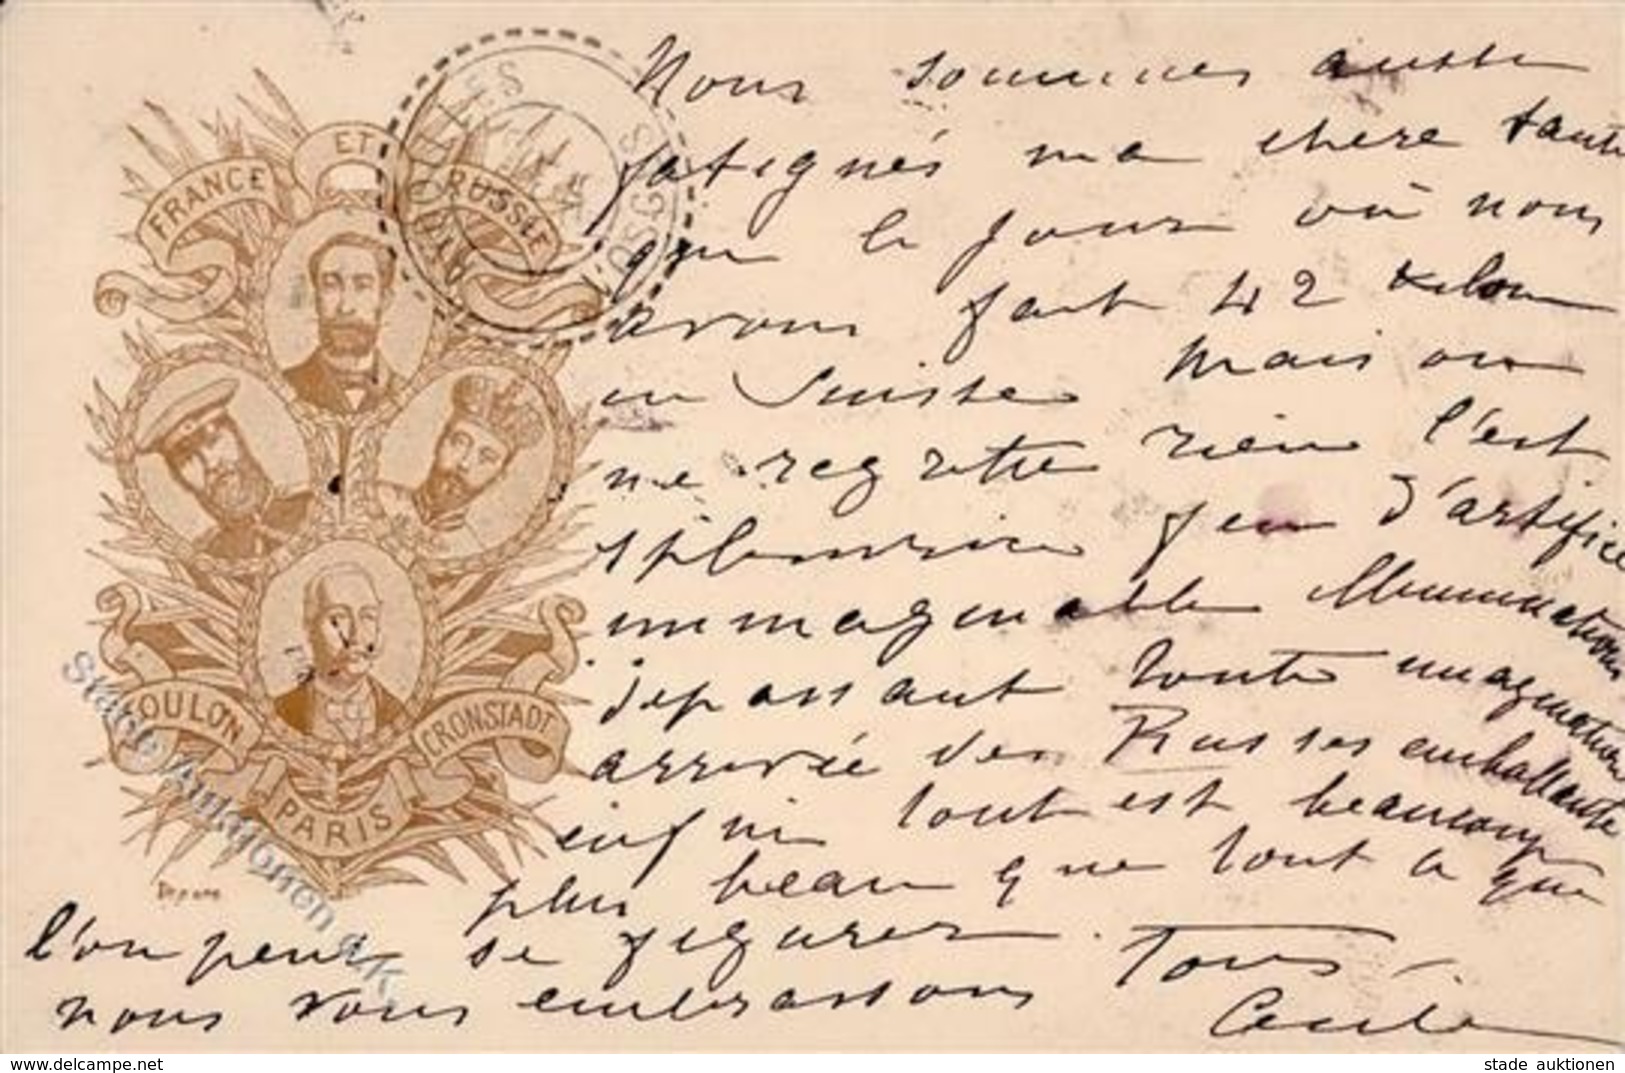 Nous sommes aussi
fatignés ma chere tante
que le jour où nous
avons fait 42 kilom
en Suisse mais on
ne regrette rien l'est
splendine feu d'artifice
immaginable illuminations
depassant toute imagination
arrivée des Russes emballante
enfin tout est beaucoup
plus beau que tout a que
l'on peut se figurer. Tous
nous vous embrassons
FRANCE ET RUSSIE
TOULON PARIS CRONSTADT
Stade Auktionen e.K.
www.delcampe.net
stade auktionen